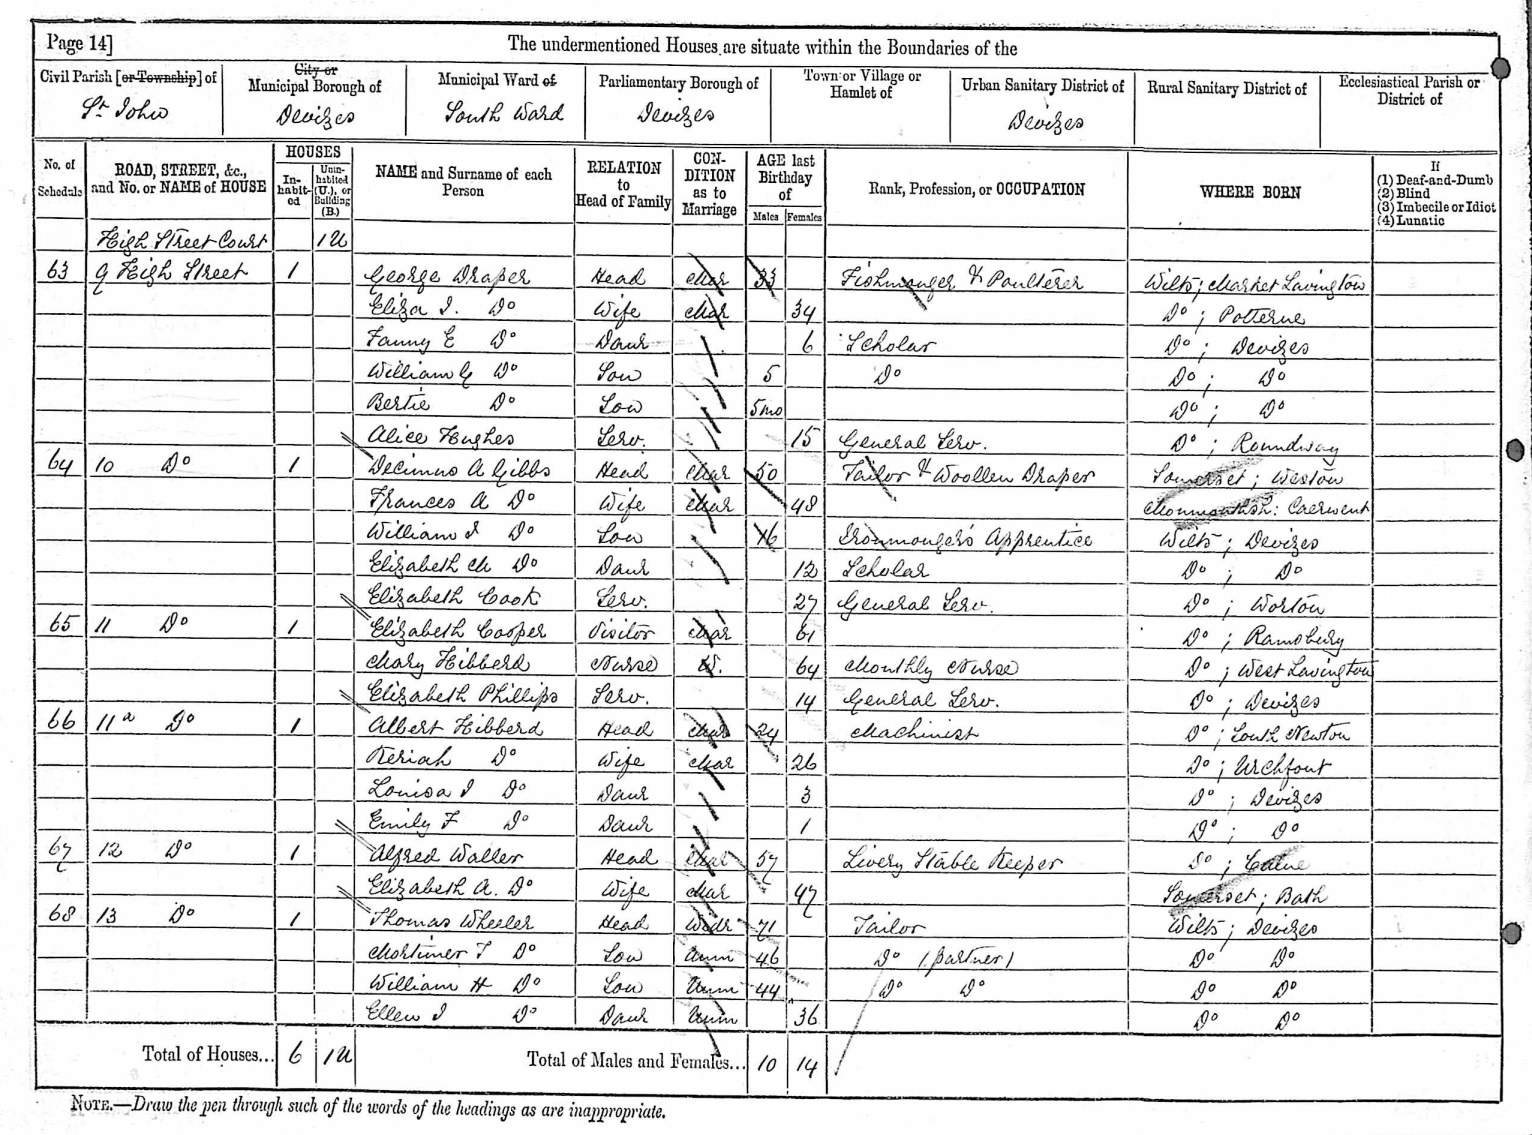 Page 14]
The undermentioned Houses are situate within the Boundaries of the
Civil Parish [or Township] of
City or Municipal Borough of
Municipal Ward of
Parliamentary Borough of
Town or Village or Hamlet of
Urban Sanitary District of
Rural Sanitary District of
Ecclesiastical Parish or District of
St John
Devizes
South Ward
Devizes
Devizes
No. of Schedule
ROAD, STREET, &c., and No. or NAME of HOUSE
HOUSES
In-habit-ed
Unin-habited (U.), or Building (B.)
NAME and Surname of each Person
RELATION to Head of Family
CON-DITION as to Marriage
AGE last Birthday of
Males
Females
Rank, Profession, or OCCUPATION
WHERE BORN
If
(1) Deaf-and-Dumb
(2) Blind
(3) Imbecile or Idiot
(4) Lunatic
High Street Court 1U
63 9 High Street 1 George Draper Head Mar 33 Fishmonger & Poulterer Wilts; Market Lavington
Eliza J. Do Wife Mar 34 Do ; Potterne
Fanny E Do Daur 6 Scholar Do ; Devizes
William G Do Son 5 Do Do ; Do
Bertie Do Son 5mo Do ; Do
Alice Hughes Serv. 15 General Serv. Do ; Roundway
64 10 Do 1 Decimus A Gibbs Head Mar 50 Tailor & Woollen Draper Somerset; Weston
Frances A Do Wife Mar 48 Monmouthsh: Caerwent
William J Do Son 16 Ironmonger's Apprentice Wilts; Devizes
Elizabeth M Do Daur 12 Scholar Do ; Do
Elizabeth Cook Serv. 27 General Serv. Do ; Worton
65 11 Do 1 Elizabeth Cooper Visitor Mar 61 Do ; Ramsbury
Mary Hibberd Nurse W. 64 Monthly Nurse Do ; West Lavington
Elizabeth Phillips Serv. 14 General Serv. Do ; Devizes
66 11a Do 1 Albert Hibberd Head Mar 24 Machinist Do ; South Newton
Keriah Do Wife Mar 26 Do ; Urchfont
Louisa J Do Daur 3 Do ; Devizes
Emily F Do Daur 1 Do ; Do
67 12 Do 1 Alfred Waller Head Mar 57 Livery Stable Keeper Do ; Calne
Elizabeth A. Do Wife Mar 47 Somerset; Bath
68 13 Do 1 Thomas Wheeler Head Widr 71 Tailor Wilts; Devizes
Mortimer T Do Son Unm 46 Do (partner) Do Do
William H Do Son Unm 44 Do Do Do Do
Ellen J Do Daur Unm 36 Do Do
Total of Houses... 6 1U Total of Males and Females... 10 14
NOTE.—Draw the pen through such of the words of the headings as are inappropriate.